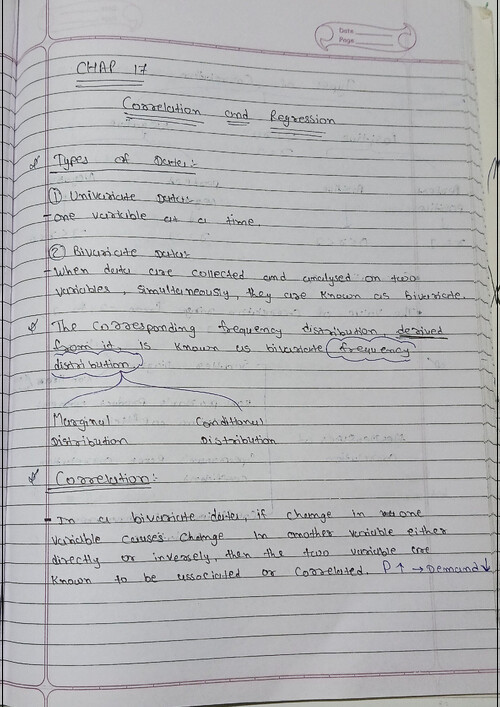 Date
Page
CHAP 17
Correlation and Regression
Types of Data:-
① Univariate Data:-
- one variable at a time.
② Bivariate Data:-
- When data are collected and analysed on two
variables, simultaneously, they are known as bivariate.
The corresponding frequency distribution, derived
from it, is known as bivariate frequency
distribution.
Marginal Conditional
Distribution Distribution
Correlation:-
- In a bivariate data, if change in one
variable causes change in another variable either
directly or inversely, then the two variable are
known to be associated or correlated. P ↑ → Demand ↓